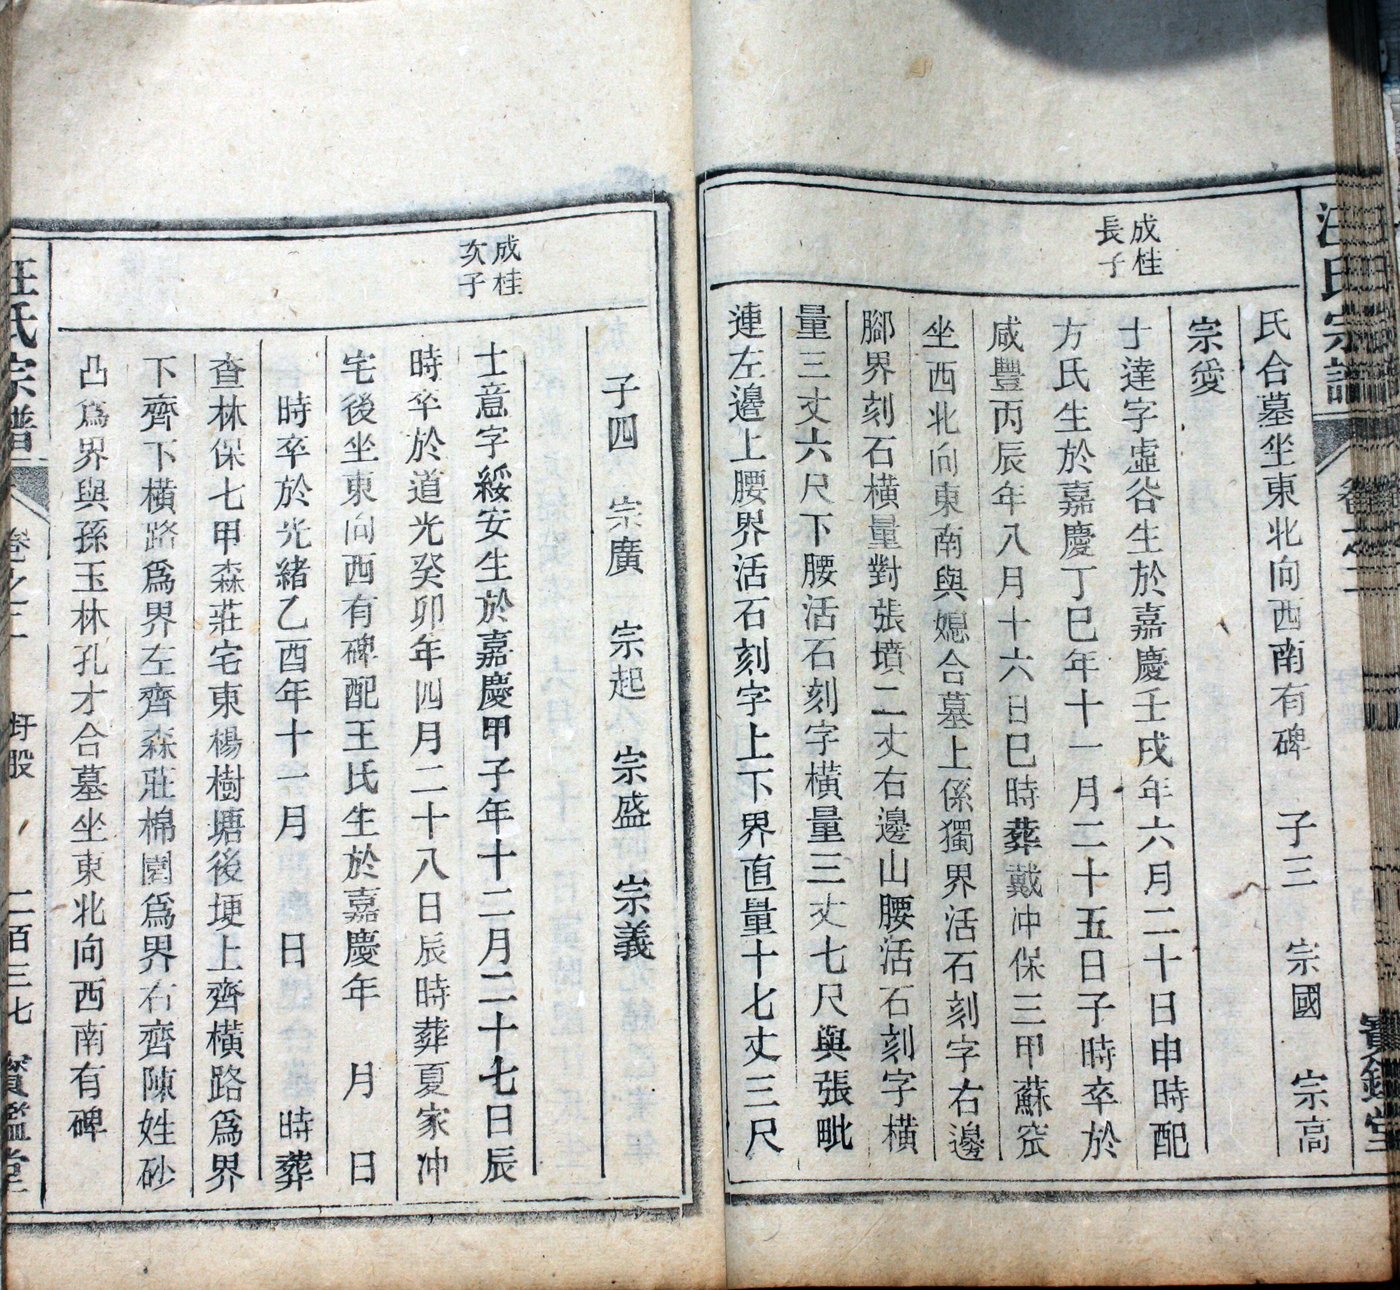 汪氏宗譜
寶鑑堂
氏合墓坐東北向西南有碑 子三 宗國 宗高
宗愛
成桂
長子
士達字虛谷生於嘉慶壬戌年六月二十日申時配
方氏生於嘉慶丁巳年十一月二十五日子時卒於
咸豐丙辰年八月十六日巳時葬戴沖保三甲蘇窊
坐西北向東南與媳合墓上係獨界活石刻字右邊
腳界刻石橫量對張墳二丈右邊山腰活石刻字橫
量三丈六尺下腰活石刻字橫量三丈七尺與張毗
連左邊上腰界活石刻字上下界直量十七丈三尺
子四 宗廣 宗起 宗盛 宗義
成桂
次子
士意字綏安生於嘉慶甲子年十二月二十七日辰
時卒於道光癸卯年四月二十八日辰時葬夏家沖
宅後坐東向西有碑配王氏生於嘉慶年 月 日
時卒於光緒乙酉年十一月 日 時葬
查林保七甲森莊宅東楊樹塘後埂上齊橫路爲界
下齊下橫路爲界左齊森莊棉園爲界右齊陳姓砂
凸爲界與孫玉林孔才合墓坐東北向西南有碑
汪氏宗譜
卷之二
圩股
二百三七
寶鑑堂